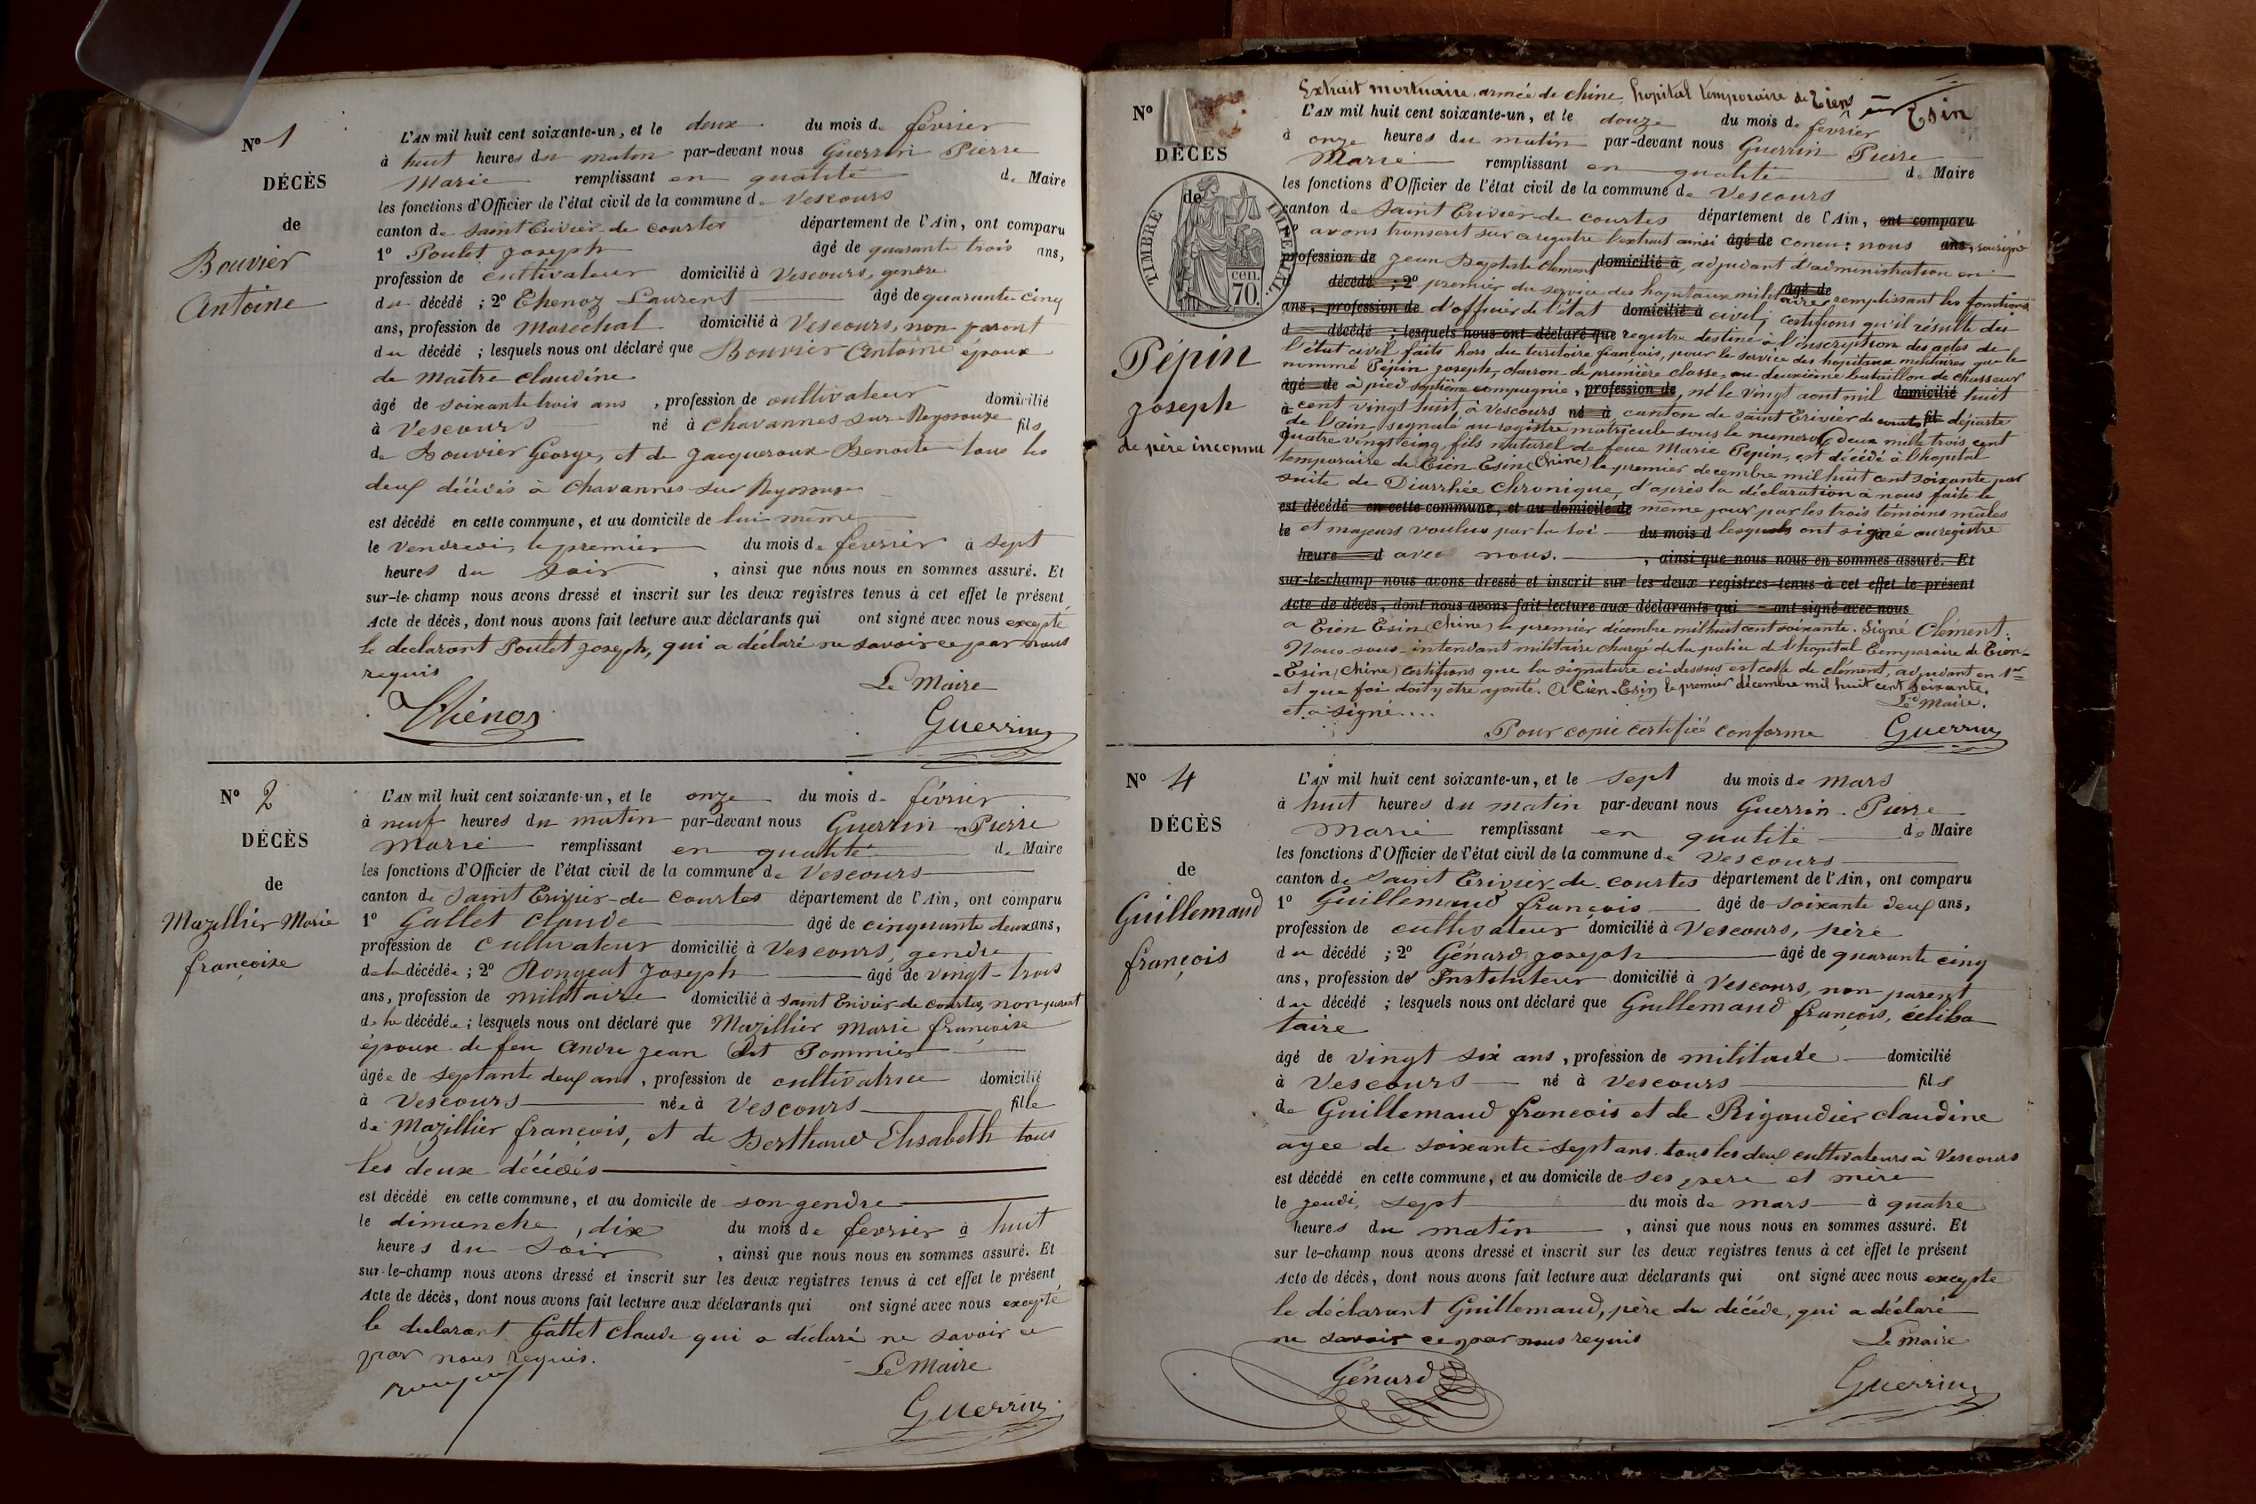 N° 1
DÉCÈS
de
Bouvier
Antoine
L'AN mil huit cent soixante-un, et le deux du mois de février
à huit heures du matin par-devant nous Guerrin Pierre
Marie remplissant en qualité de Maire
les fonctions d'Officier de l'état civil de la commune de Vescours
canton de Saint Trivier de courtes département de l'Ain, ont comparu
1° Poulet Joseph âgé de quarante trois ans,
profession de cultivateur domicilié à Vescours, gendre
du décédé ; 2° Thenoz Laurent âgé de quarante cinq
ans, profession de Maréchal domicilié à Vescours, non parent
du décédé ; lesquels nous ont déclaré que Bouvier Antoine époux
de Maître Claudine
âgé de soixante trois ans, profession de cultivateur domicilié
à Vescours né à Chavannes sur Reyssouze fils
de Bouvier George, et de Jacqueroux Benoite tous les
deux décédés à Chavannes sur Reyssouze
est décédé en cette commune, et au domicile de lui même
le Vendredi, le premier du mois de février à sept
heures du soir, ainsi que nous nous en sommes assuré. Et
sur-le-champ nous avons dressé et inscrit sur les deux registres tenus à cet effet le présent
Acte de décès, dont nous avons fait lecture aux déclarants qui ont signé avec nous excepté
le declarant Poulet Joseph, qui a déclaré ne savoir ce par nous
requis
Le Maire
Thénoz
Guerrin
N° 2
DÉCÈS
de
Mazillier Marie
françoise
L'AN mil huit cent soixante-un, et le onze du mois de février
à neuf heures du matin par-devant nous Guerrin Pierre
Marie remplissant en qualité de Maire
les fonctions d'Officier de l'état civil de la commune de Vescours
canton de Saint Trivier de Courtes département de l'Ain, ont comparu
1° Gallet Claude âgé de cinquante deux ans,
profession de cultivateur domicilié à Vescours, gendre
de la décédée ; 2° Rongeat Joseph âgé de vingt-trois
ans, profession de militaire domicilié à Saint Trivier de courtes, non parent
de la décédée ; lesquels nous ont déclaré que Mazillier Marie françoise
épouse de feu André Jean dit Pommier
âgée de septante deux ans, profession de cultivatrice domicilié
à Vescours née à Vescours fille
de Mazillier françois, et de Berthaud Elisabeth tous
les deux décédés
est décédé en cette commune, et au domicile de son gendre
le dimanche, dix du mois de fevrier à huit
heures du soir, ainsi que nous nous en sommes assuré. Et
sur-le-champ nous avons dressé et inscrit sur les deux registres tenus à cet effet le présent
Acte de décès, dont nous avons fait lecture aux déclarants qui ont signé avec nous excepté
le declarant Gallet Claude qui a déclaré ne savoir ce
par nous requis.
Le Maire
Guerrin
N°
DÉCÈS
de
TIMBRE IMPERIAL
cen.
70.
Pépin
Joseph
de père inconnu
Extrait mortuaire, armée de chine, hopital temporaire de Tien = Tsin
L'AN mil huit cent soixante-un, et le douze du mois de fevrier
à onze heures du matin par-devant nous Guerrin Pierre
Marie remplissant en qualité de Maire
les fonctions d'Officier de l'état civil de la commune de Vescours
canton de Saint Trivier de courtes département de l'Ain, ont comparu
avons transcrit sur ce registre l'extrait ainsi âgé de concu : nous ans, soussigné
profession de Jean Baptiste Clement domicilié à, adjudant d'administration en
décédé ; 2° premier du service des hopitaux militaires âgé de remplissant les fonctions
ans, profession de d'officier de l'état domicilié à civil, certifions qu'il résulte du
d décédé ; lesquels nous ont déclaré que registre destiné à l'inscription des actes de
l'état civil faits hors du territoire français, pour le service des hopitaux militaires que le
nommé Pépin Joseph, clairon de première classe au deuxième bataillon de chasseur
âgé de à pied septième compagnie, profession de, né le vingt aout mil domicilié huit
à cent vingt huit, à Vescours né à canton de Saint Trivier de courtes fil départe
de l'Ain, signalé au registre matricule sous le numero deux mille trois cent
quatre vingt cinq, fils naturel de feue Marie Pépin, est décédé à l'hopital
temporaire de Tien Tsin (Chine) le premier decembre mil huit cent soixante par
suite de Diarrhée Chronique, d'après la déclaration à nous faite le
est décédé en cette commune, et au domicile de même jour par les trois témoins mâles
le et majeurs voulus par la loi du mois d lesquels ont signé au registre
heure d avec nous. , ainsi que nous nous en sommes assuré. Et
sur-le-champ nous avons dressé et inscrit sur les deux registres tenus à cet effet le présent
Acte de décès, dont nous avons fait lecture aux déclarants qui ont signé avec nous
a Tien Tsin (Chine) le premier décembre mil huit cent soixante. Signé Clément.
Nous sous-intendant militaire chargé de la police de l'hopital temporaire de Tien-
-Tsin (Chine) certifions que la signature ci dessus est celle de clément, adjudant en 1er
et que foi doit y etre ajouté. A Tien-Tsin le premier décembre mil huit cent soixante.
et a signé....
Le Maire.
Pour copie certifiée conforme Guerrin
N° 4
DÉCÈS
de
Guillemaud
françois
L'AN mil huit cent soixante-un, et le sept du mois de mars
à huit heures du matin par-devant nous Guerrin Pierre
Marie remplissant en qualité de Maire
les fonctions d'Officier de l'état civil de la commune de Vescours
canton de Saint Trivier de courtes département de l'Ain, ont comparu
1° Guillemaud françois âgé de soixante deux ans,
profession de cultivateur domicilié à Vescours, père
du décédé ; 2° Génard Joseph âgé de quarante cinq
ans, profession de Instituteur domicilié à Vescours, non parent
du décédé ; lesquels nous ont déclaré que Guillemaud françois, céliba
taire
âgé de vingt six ans, profession de militaire domicilié
à Vescours né à Vescours fils
de Guillemaud françois et de Rigaudier claudine
agee de soixante sept ans tous les deux cultivateurs à Vescours
est décédé en cette commune, et au domicile de ses père et mère
le jeudi, sept du mois de mars à quatre
heures du matin, ainsi que nous nous en sommes assuré. Et
sur le-champ nous avons dressé et inscrit sur les deux registres tenus à cet effet le présent
Acte de décès, dont nous avons fait lecture aux déclarants qui ont signé avec nous excepté
le déclarant Guillemaud, père du décédé, qui a déclaré
ne savoir ce par nous requis
Le Maire
Génard
Guerrin